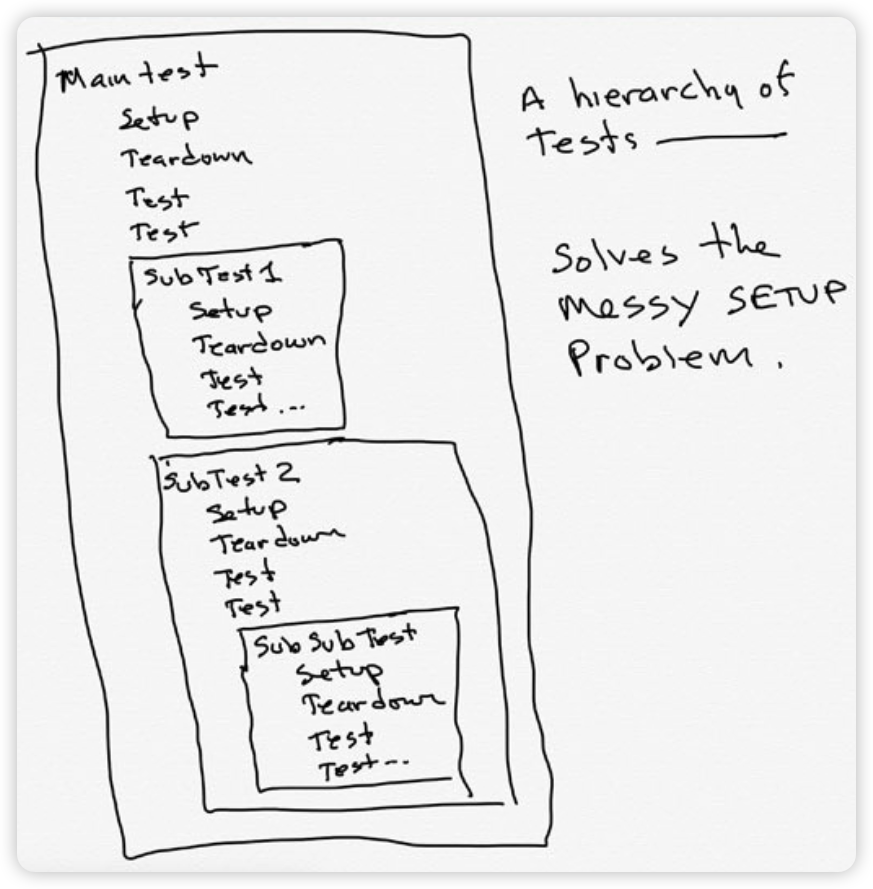 Main test
Setup
Teardown
Test
Test
SubTest 1
Setup
Teardown
Test
Test ...
SubTest 2
Setup
Teardown
Test
Test
Sub Sub Test
Setup
Teardown
Test
Test...
A hierarchy of
Tests —
Solves the
messy SETUP
Problem.